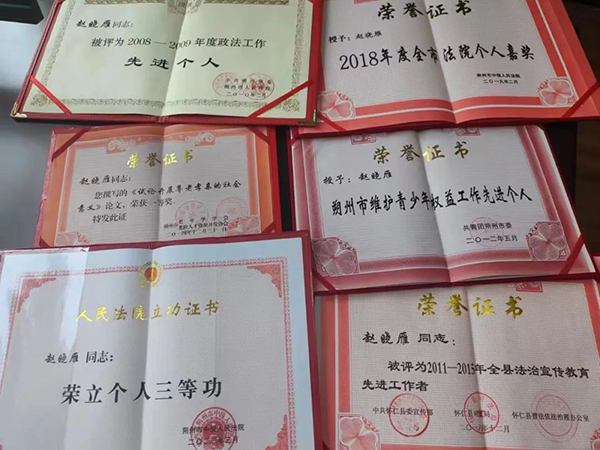 赵晓雁同志:
被评为2008—2009年度政法工作
先进个人
二〇一〇年二月
荣誉证书
授予:赵晓雁
2018年度全市法院个人嘉奖
朔州市中级人民法院
二〇一九年二月
荣誉证书
赵晓雁同志:
您撰写的《试论开展尊老孝亲的社会
意义》论文,荣获一等奖。
特发此证
荣誉证书
授予:赵晓雁
朔州市维护青少年权益工作先进个人
共青团朔州市委
二〇一二年五月
人民法院立功证书
赵晓雁 同志:
荣立个人三等功
朔州市中级人民法院
荣誉证书
赵晓雁 同志:
被评为2011—2015年全县法治宣传教育
先进工作者
中共怀仁县委宣传部 怀仁县司法局 怀仁县普法依法治理办公室